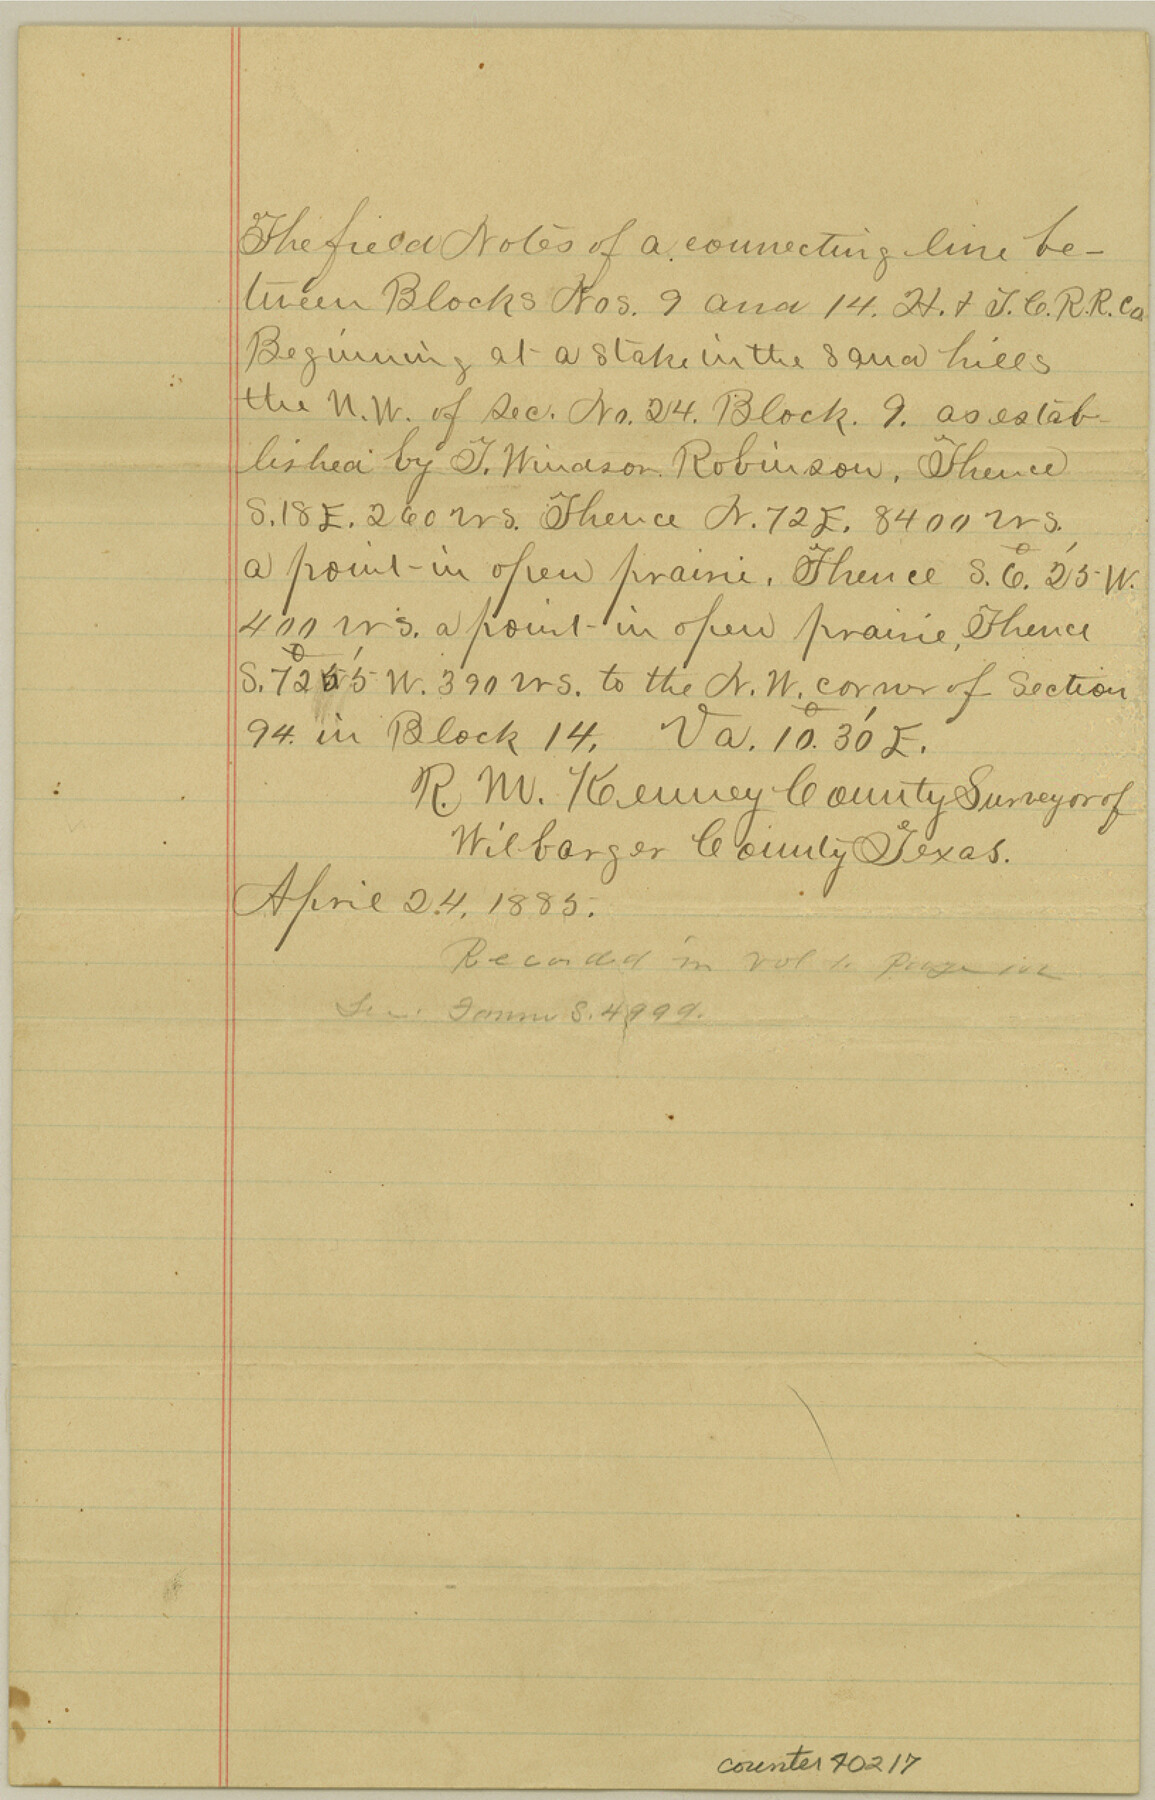 The field Notes of a connecting line be-
tween Blocks Nos. 9 and 14. H. & T. C. R.R. Co
Beginning at a stake in the sand hills
the N.W. of Sec. No. 24. Block. 9. as estab-
lished by T. Windsor Robinson. Thence
S. 18 E. 260 vrs. Thence N. 72 E. 8400 vrs.
a point in open prairie. Thence S. 6.° 25' W.
400 vrs. a point in open prairie, Thence
S. 72° 55' W. 390 vrs. to the N. W. corner of Section
94. in Block 14. Va. 10.° 30' E.
R. M. Kenney County Surveyor of
Wilbarger County Texas.
April 24, 1885.
Recorded in Vol Page
S. 4999.
counter 40217